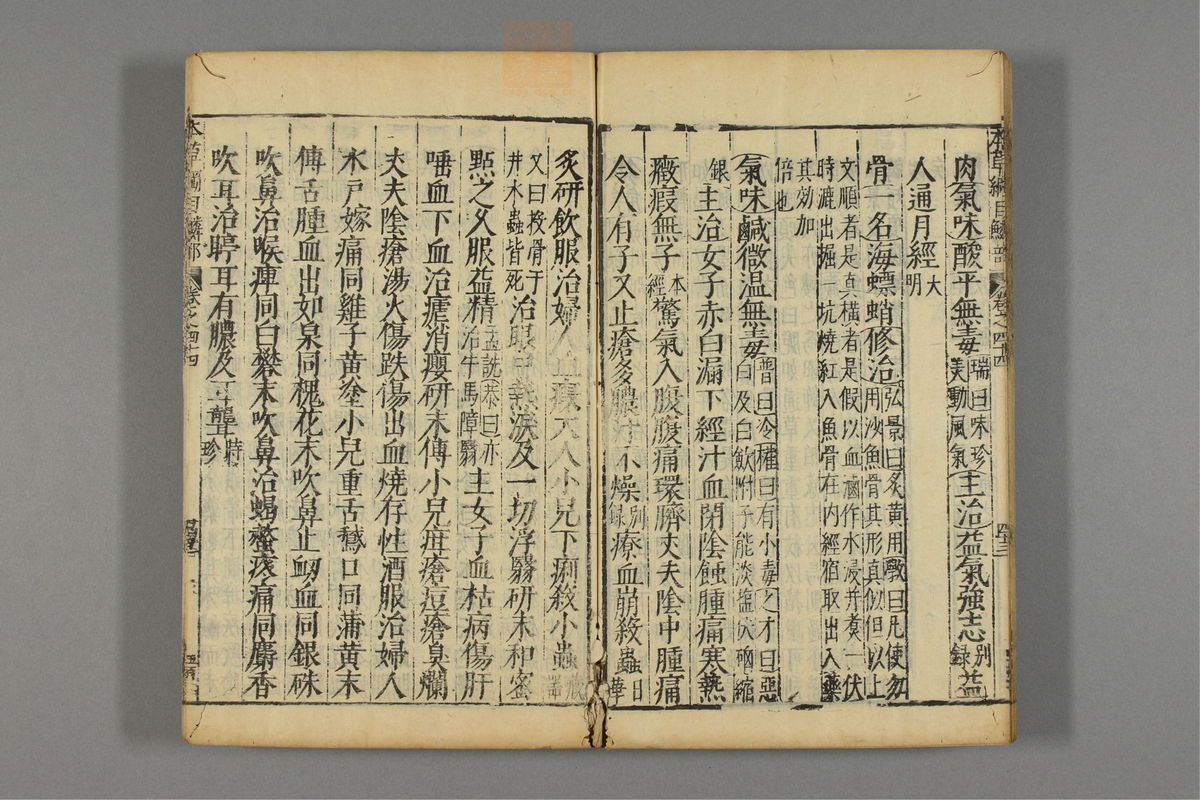 本草綱目鱗部 卷之四十四
肉氣味酸平無毒瑞曰味珍美動風氣主治益氣強志別錄益
人通月經大明
骨一名海螵蛸修治弘景曰炙黃用斆曰凡使勿用沙魚骨其形真似但以上
文順者是真橫者是假以血鹵作水浸并煮一伏
時漉出掘一坑燒紅入魚骨在內經宿取出入藥
其効加
倍也
氣味鹹微溫無毒普曰冷權曰有小毒之才曰惡白及白歛附子能淡鹽伏硇縮
銀主治女子赤白漏下經汁血閉陰蝕腫痛寒熱
癥瘕無子本經驚氣入腹腹痛環臍丈夫陰中腫痛
令人有子又止瘡多膿汁不燥別錄療血崩殺蟲日華
炙研飲服治婦人血瘕大人小兒下痢殺小蟲藏器
又曰投骨于井水蟲皆死治眼中熱淚及一切浮翳研末和蜜
點之久服益精孟詵恭曰亦治牛馬障翳主女子血枯病傷肝
唾血下血治瘧消癭研末傅小兒疳瘡痘瘡臭爛
丈夫陰瘡湯火傷跌傷出血燒存性酒服治婦人
水戶嫁痛同雞子黃塗小兒重舌鵞口同蒲黃末
傅舌腫血出如泉同槐花末吹鼻止衂血同銀硃
吹鼻治喉痺同白礬末吹鼻治蝎螫疼痛同麝香
吹耳治聤耳有膿及耳聾時珍
本草綱目鱗部 卷之四十四